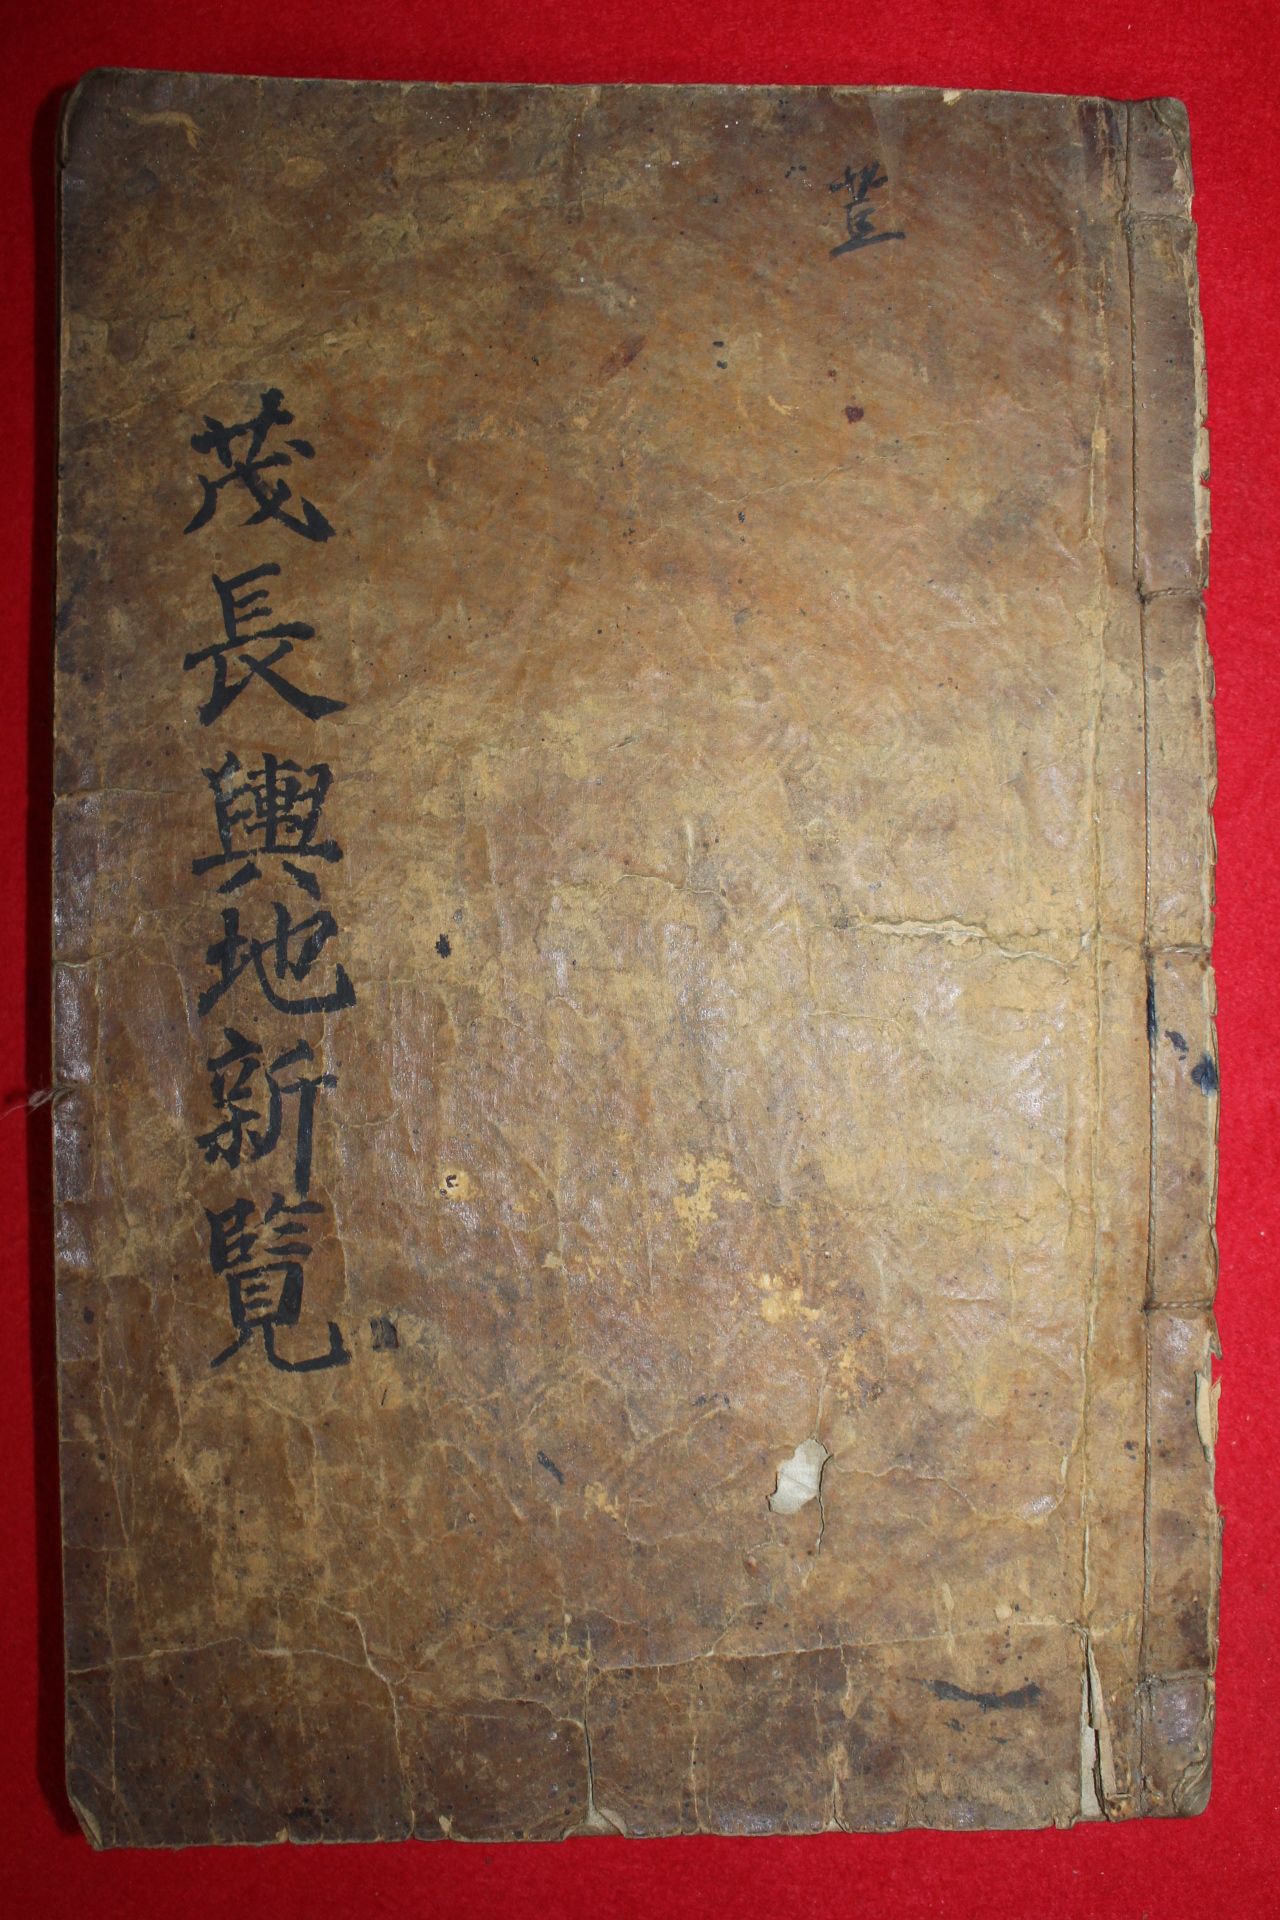 茂長輿地新覽
一